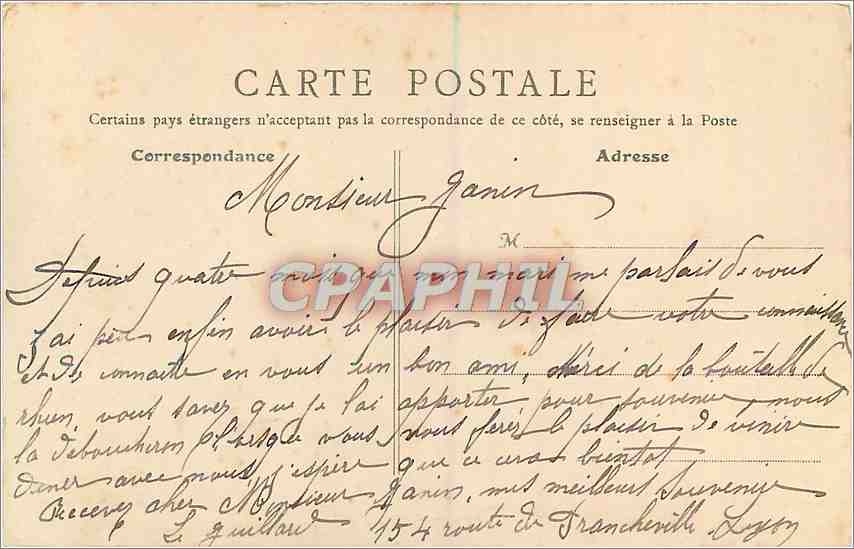 CARTE POSTALE
Certains pays étrangers n'acceptant pas la correspondance de ce côté, se renseigner à la Poste
Correspondance
Adresse
Monsieur Janin
M
CPAPHIL
Depuis quatre mois que mon mari me parlait de vous
j'ai peu enfin avoir le plaisir de faire votre connaissance
et de connaitre en vous un bon ami, Merci de la bouteille de
rhien, vous savez que je l'ai apporter pour souvenir, nous
la déboucheron lorsque vous nous ferés le plaisir de venire
diner avec nous j'espère que ce cera bientot
Recevez cher Monsieur Janin, mes meilleurs souvenir
Le Guillard 154 route de Francheville Lyon